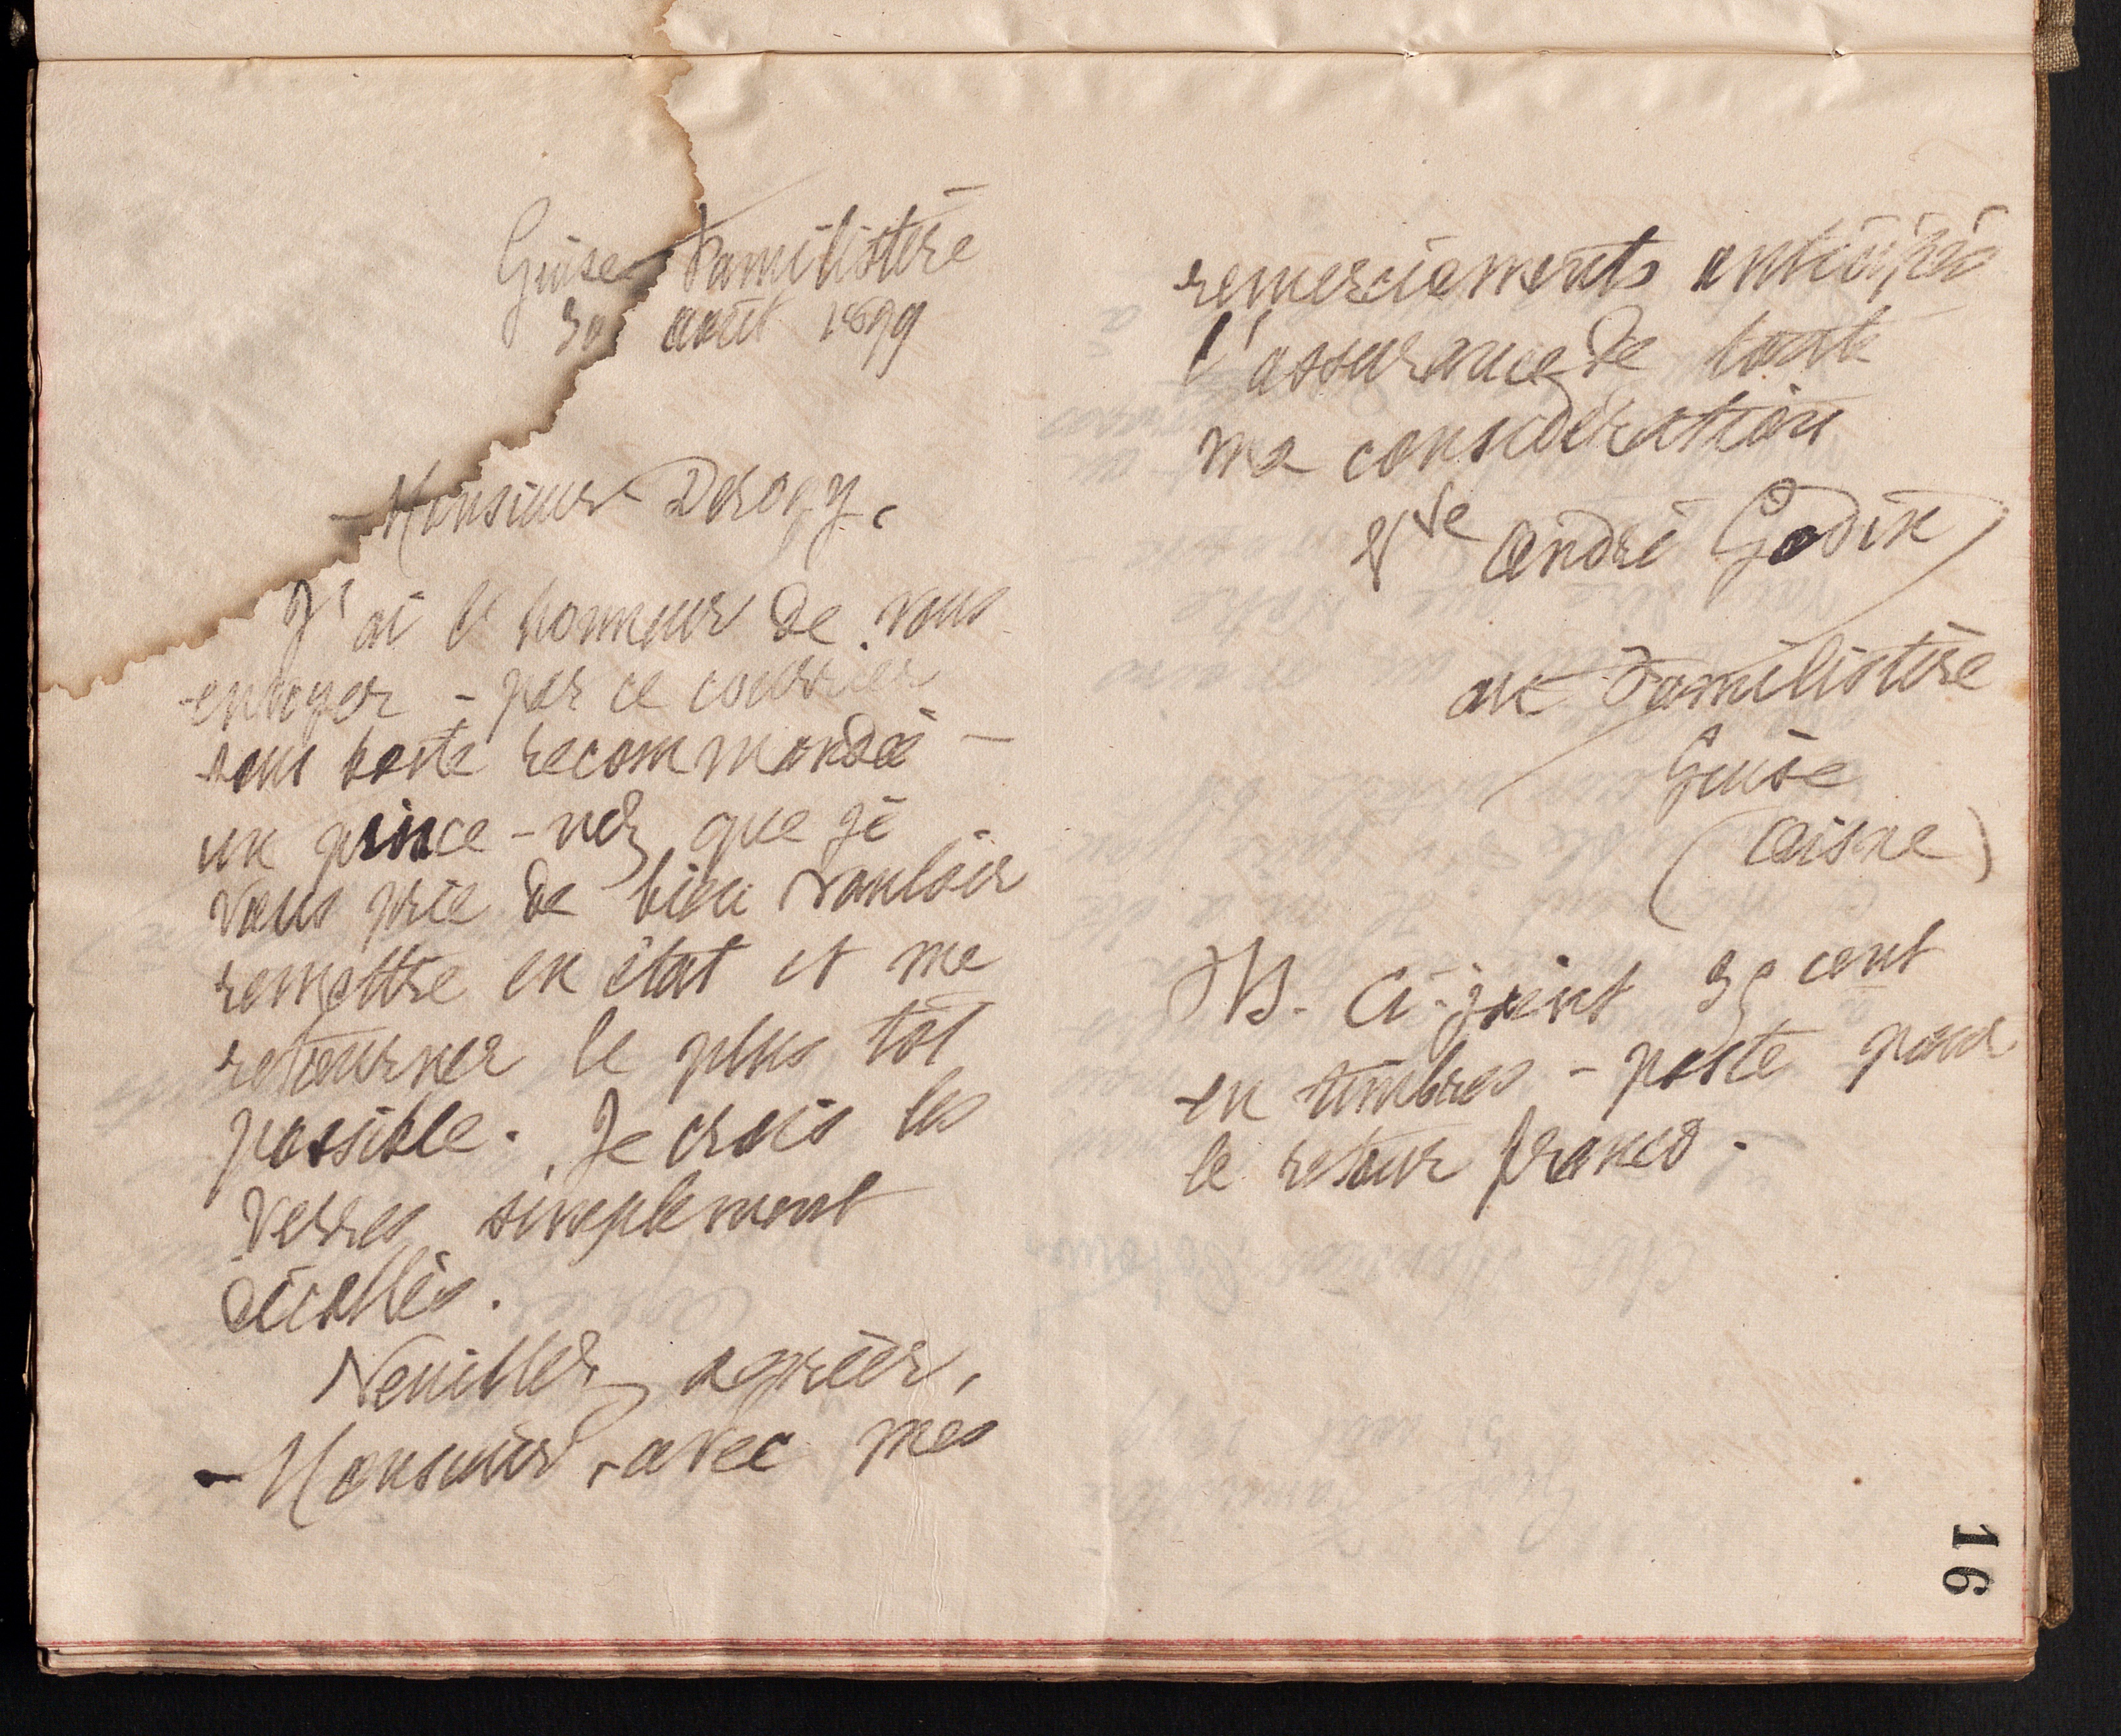 Guise Familistère
30 août 1899
Monsieur Derogy,
J'ai l'honneur de vous
envoyer - par ce courrier
sous poste recommandée -
un pince-nez que je
vous prie de bien vouloir
remettre en état et me
retourner le plus tôt
possible. Je crois les
verres simplement
décollés.
Veuillez agréer,
Monsieur, avec mes
remerciements anticipés
l'assurance de toute
ma considération
Vve André Godin
au Familistère
Guise
(Aisne)
NB. Ci-joint 35 cent
en timbres-poste pour
le retour franco.
16